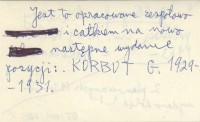 Jest to opracowane zespołowo
i całkiem na nowo
następne wydanie
pozycji: KORBUT G. 1929-
-1931.